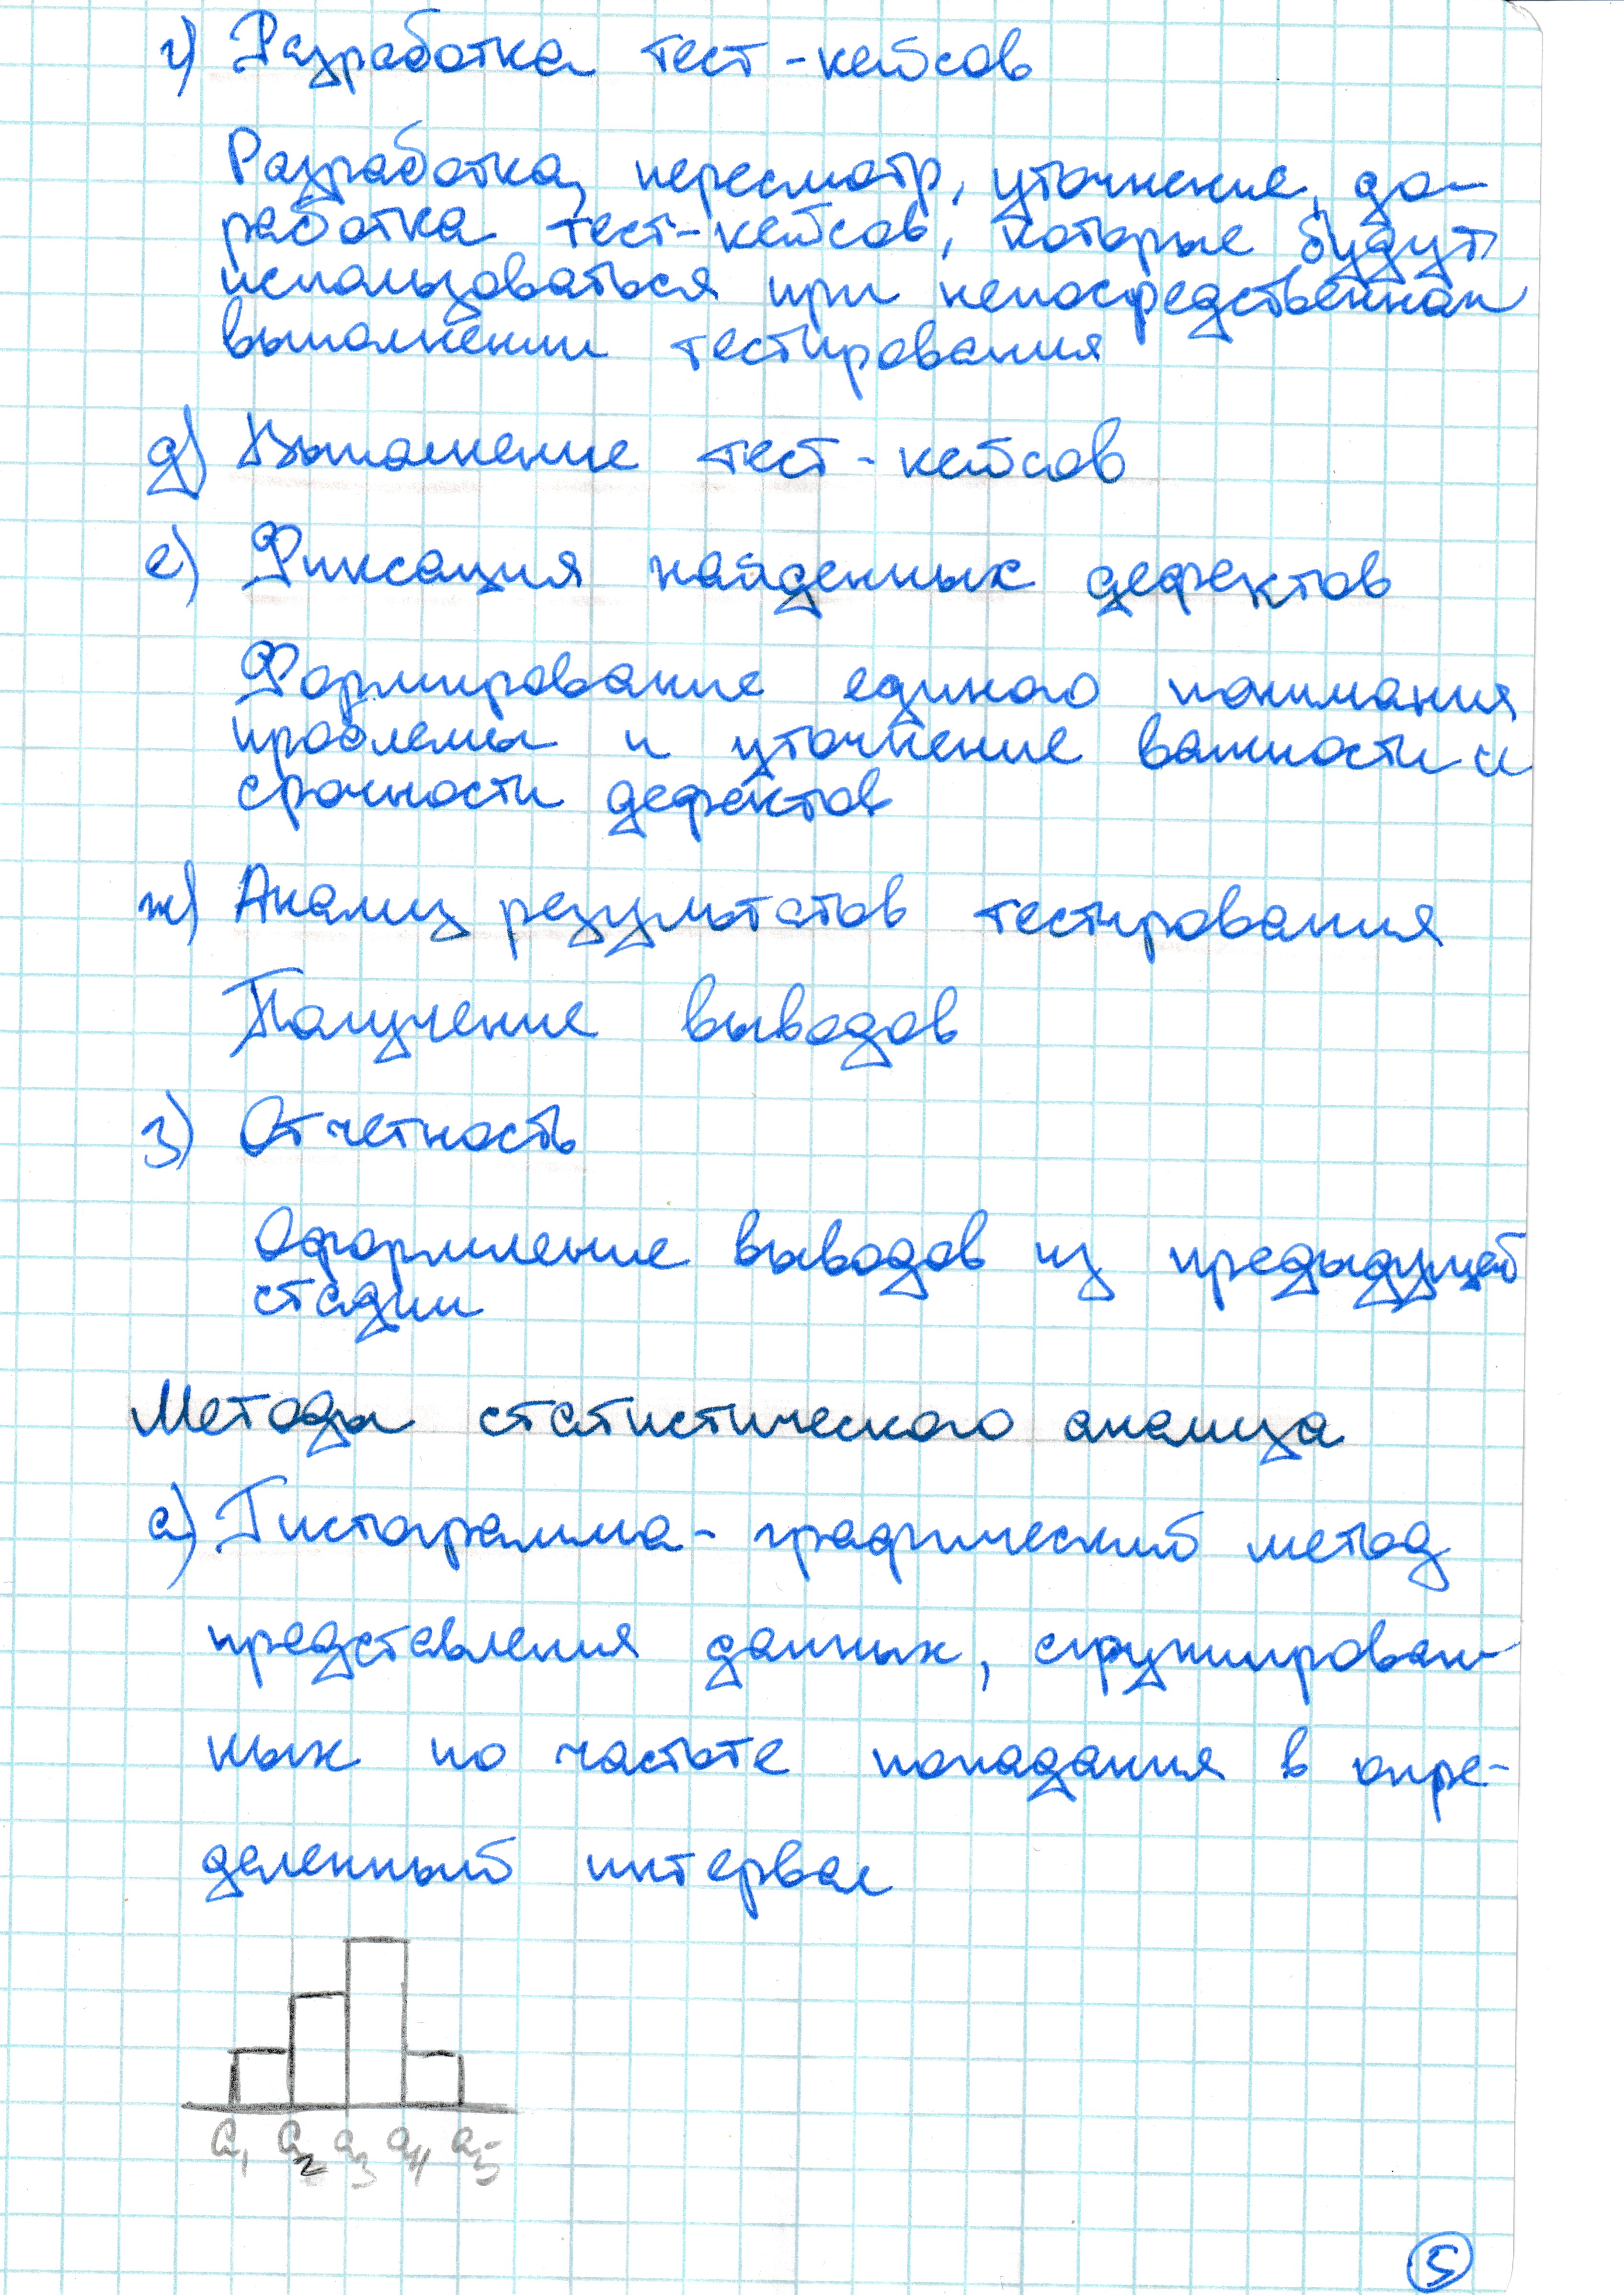 г) Разработка тест-кейсов
Разработка, пересмотр, уточнение, до-
работка тест-кейсов, которые будут
использоваться при непосредственном
выполнении тестирования
д) Выполнение тест-кейсов
е) Фиксация найденных дефектов
Формирование единого понимания
проблемы и уточнение важности и
срочности дефектов
ж) Анализ результатов тестирования
Получение выводов
з) Отчетность
Оформление выводов из предыдущей
стадии
Методы статистического анализа
а) Гистограмма - графический метод
представления данных, сгруппирован-
ных по частоте попадания в опре-
деленный интервал
a₁ a₂ a₃ a₄ a₅
5